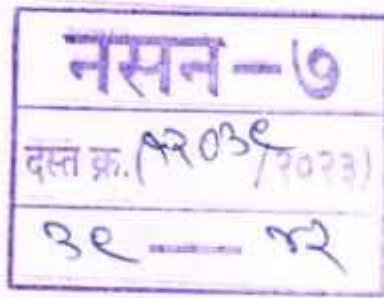 नसन-७
दस्त क्र. (१२०३९/२०२३)
३९ — ४२